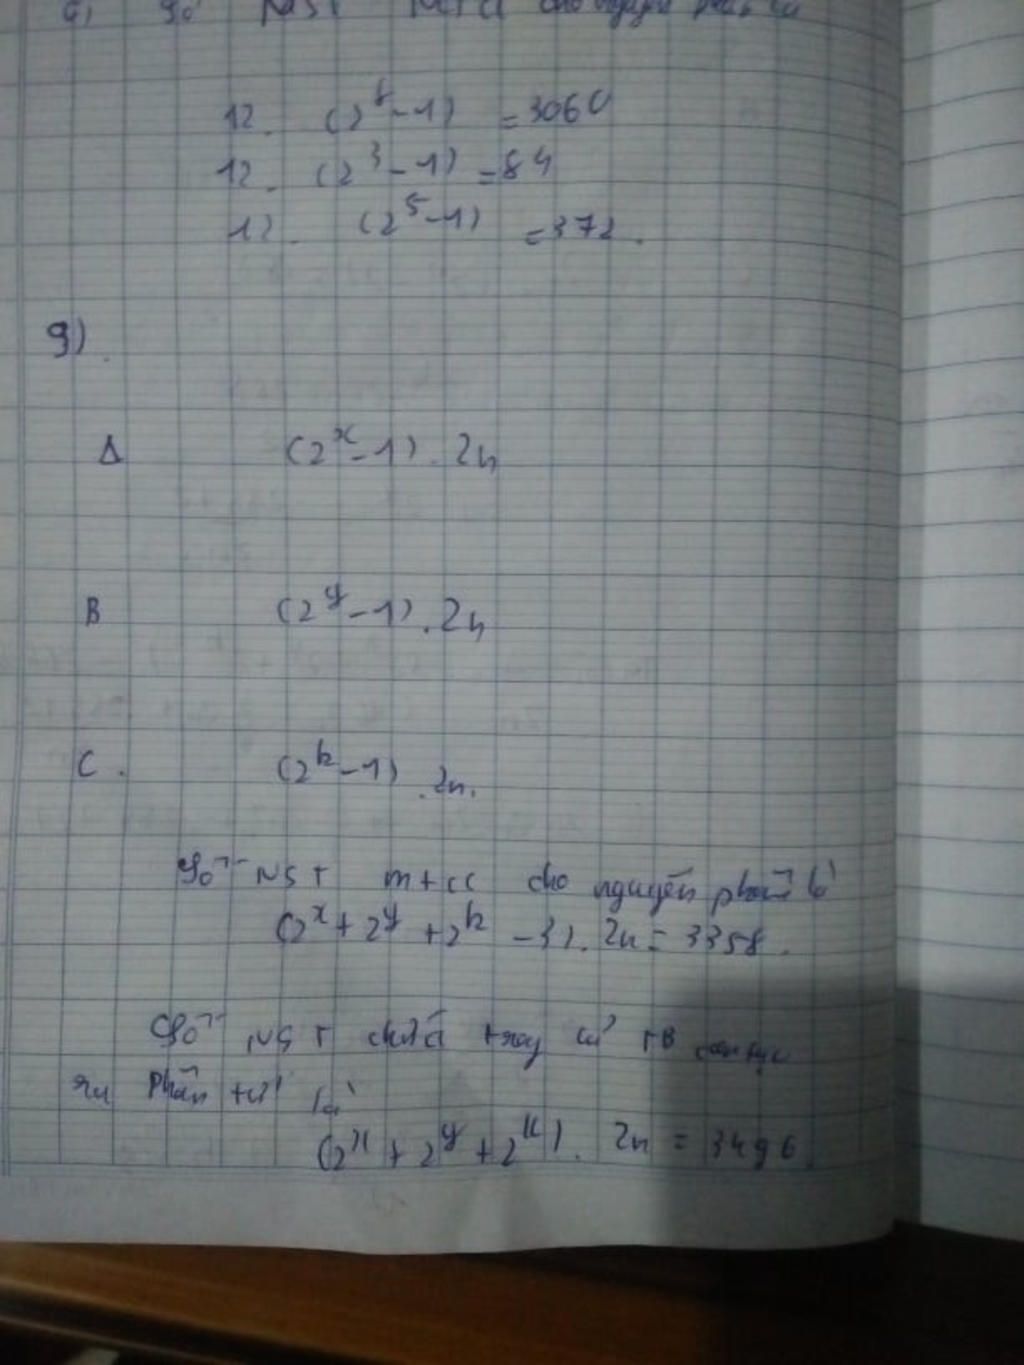 12. (2^8 - 1) = 3060
12. (2^3 - 1) = 84
12. (2^5 - 1) = 372.
9)
A (2^x - 1). 2n
B (2^y - 1). 2n
C. (2^k - 1). 2n.
Số NST mtcc cho nguyên phân là
(2^x + 2^y + 2^k - 3). 2n = 3358.
Số NST chứa trong TB
phân tử là
(2^x + 2^y + 2^k). 2n = 3496